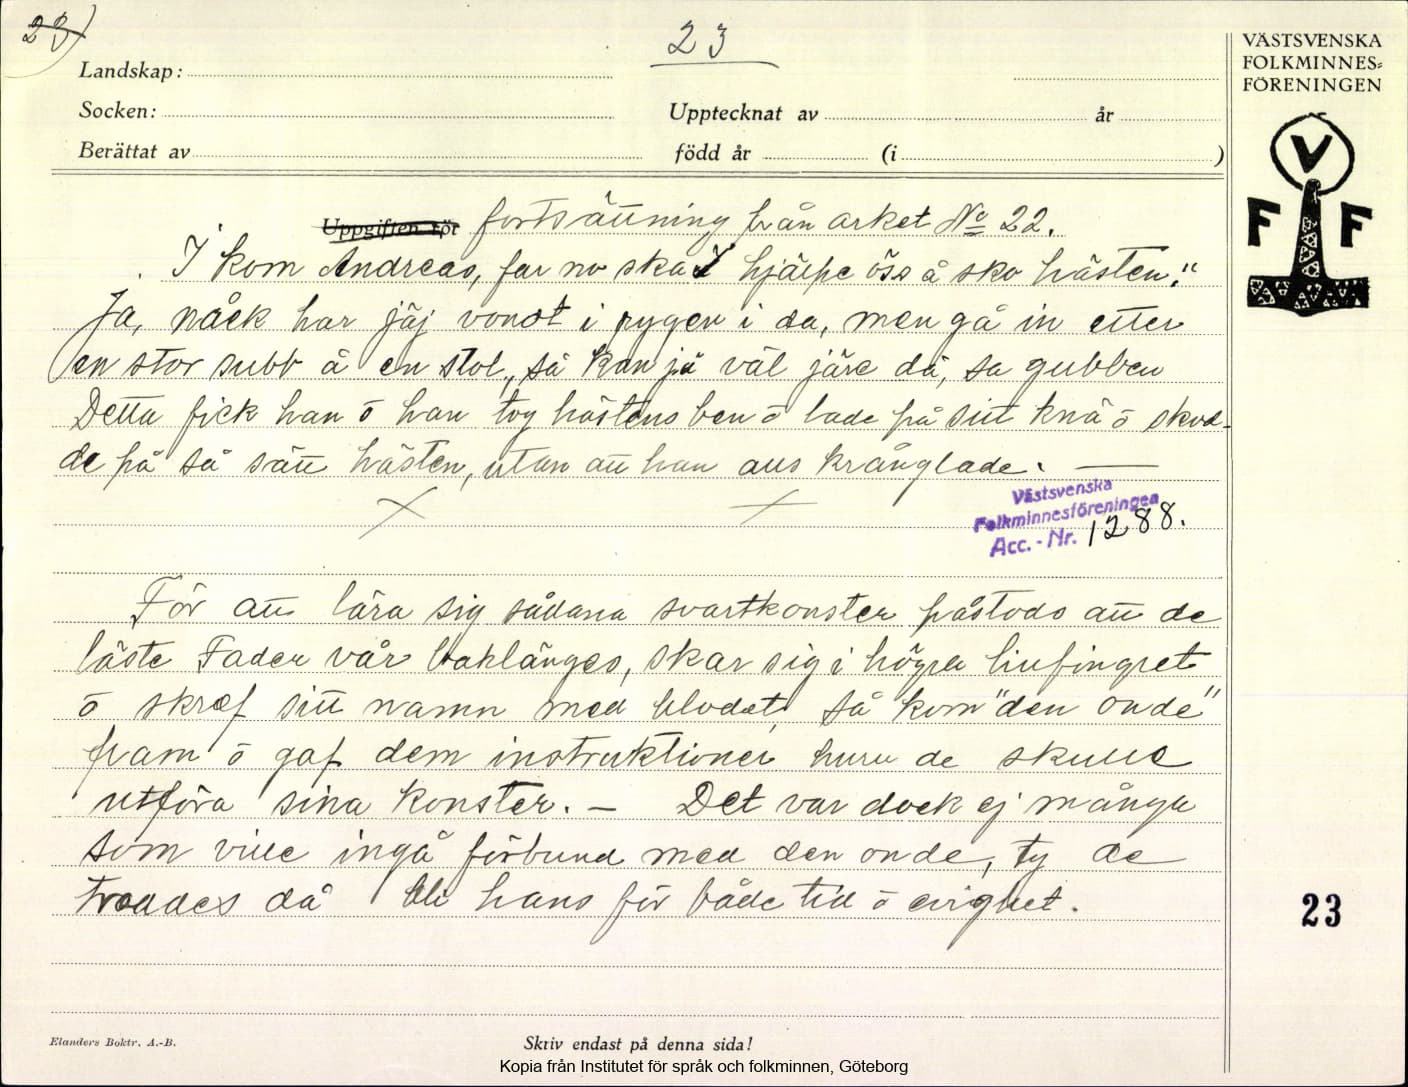 23)
23
VÄSTSVENSKA
FOLKMINNES=
FÖRENINGEN
Landskap:
Socken:
Upptecknat av
år
Berättat av
född år
(i
)
V
F F
Uppgiften rör fortsättning från arket No 22.
I kom Andreas, far no ska I hjälpe öss å sko hästen."
Ja, nåck har jäj vondt i rygen i da, men gå in etter
en stor subb å en stol, så kan jä väl järe dä, sa gubben
Detta fick han ō han tog hästens ben ō lade på sitt knä ō skod-
de på så sätt hästen, utan att han alls krånglade. —
Västsvenska
Folkminnesföreningen
Acc. - Nr. 1288.
För att lära sig sådana svartkonster påstods att de
läste Fader vår baklänges, skar sig i högra lillfingret
ō skref sitt namn med blodet, så kom "den onde"
fram ō gaf dem instruktioner huru de skulle
utföra sina konster. — Det var dock ej många
som ville ingå förbund med den onde, ty de
troddes då bli hans för både tid ō evighet.
23
Elanders Boktr. A.-B.
Skriv endast på denna sida!
Kopia från Institutet för språk och folkminnen, Göteborg